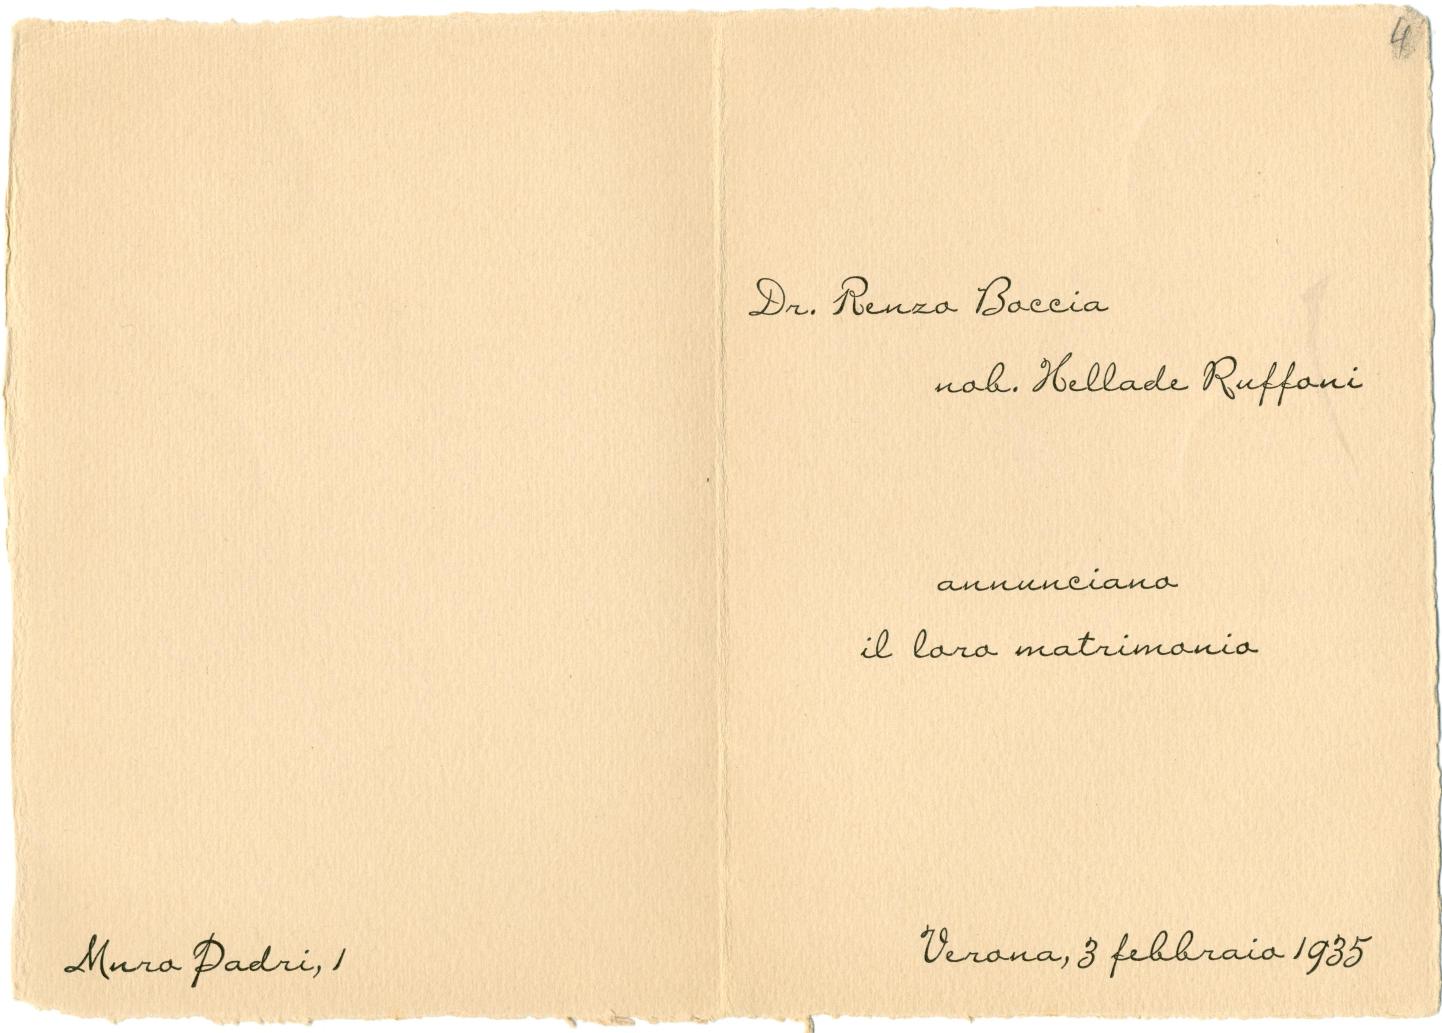 4
Dr. Renzo Boccia
nob. Hellade Ruffoni
annunciano
il loro matrimonio
Muro Padri, 1
Verona, 3 febbraio 1935